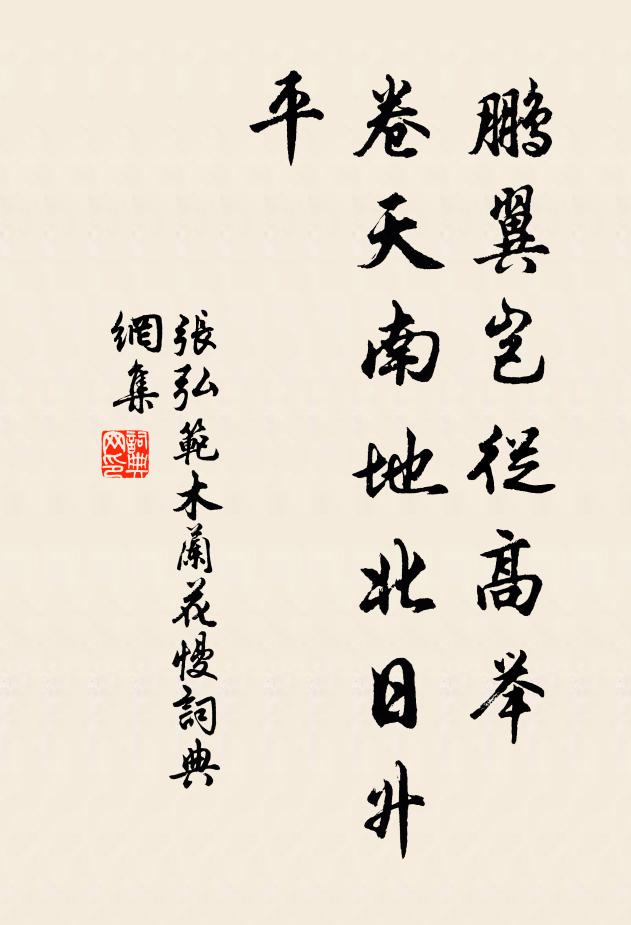 鹏翼岂從高举
卷天南地北日升
平
張弘範木蘭花慢詞典
網集
詞典
网印